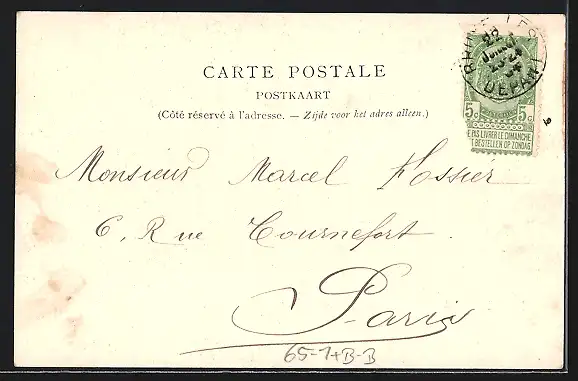 CARTE POSTALE
POSTKAART
(Côté réservé à l'adresse. — Zijde voor het adres alleen.)
BRUXELLES
DEPART
5c 5c
E PAS LIVRER LE DIMANCHE
T BESTELLEN OP ZONDAG
Monsieur Marcel Fossier
6, Rue Tournefort.
Paris
65-1+B-B